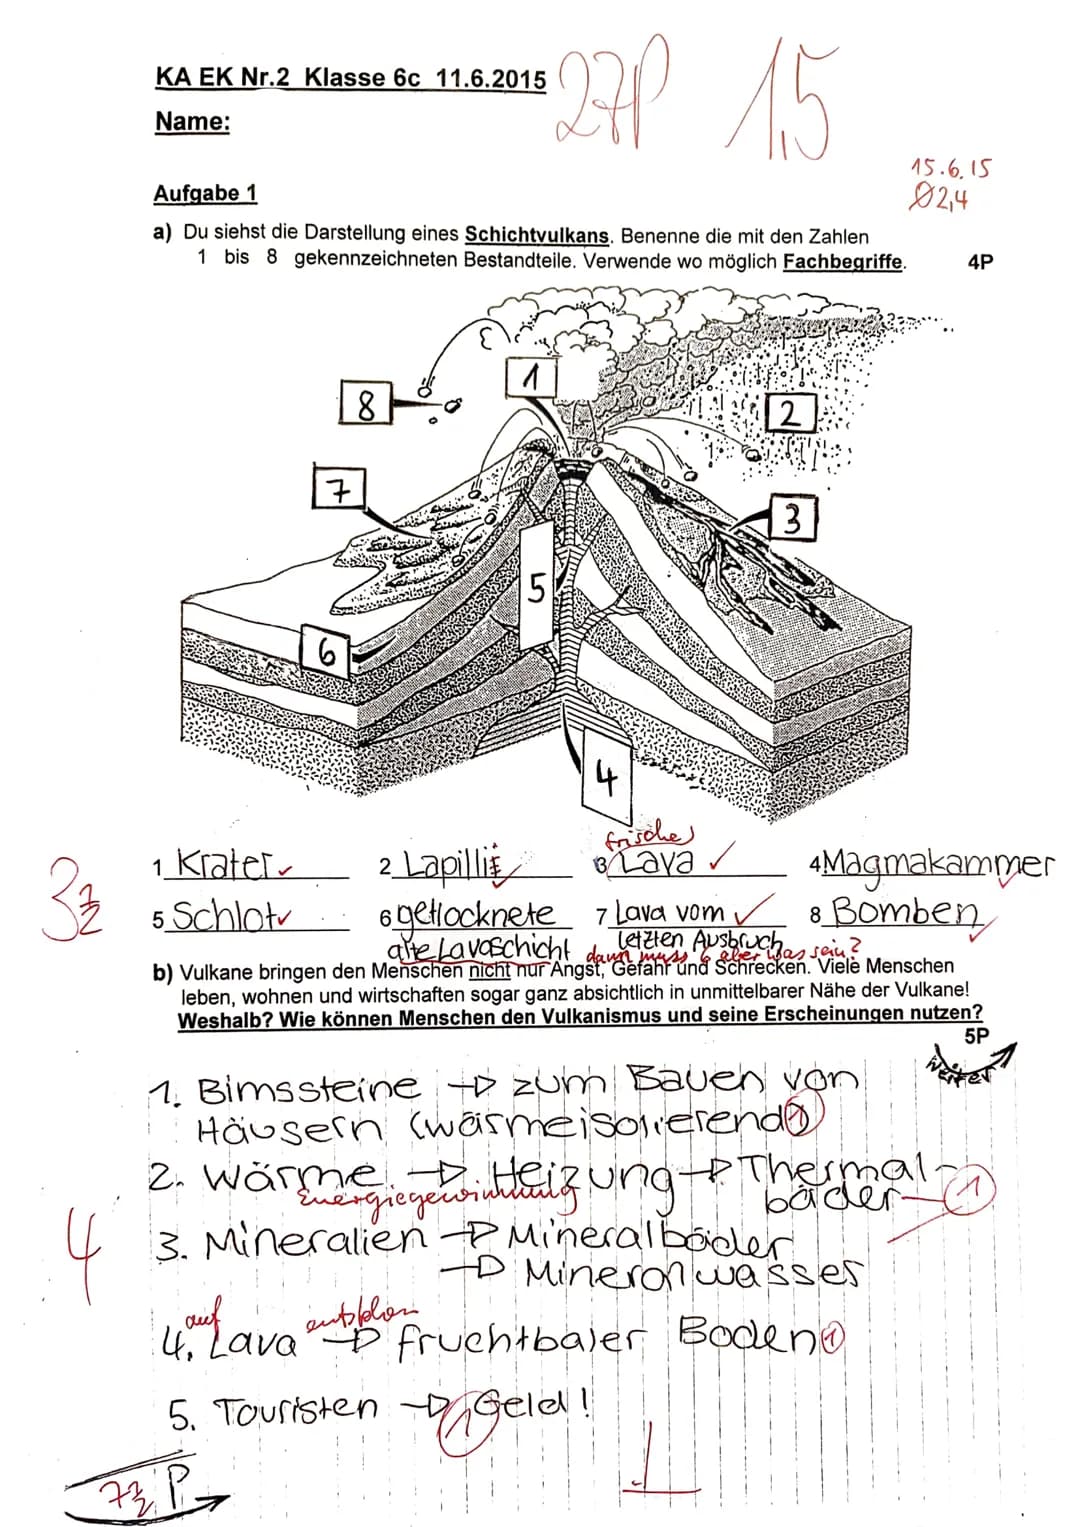 KA EK Nr.2 Klasse 6c 11.6.2015
27P 1,5
Name:
15.6.15
Ø2,4
Aufgabe 1
a) Du siehst die Darstellung eines Schichtvulkans. Benenne die mit den Zahlen
1 bis 8 gekennzeichneten Bestandteile. Verwende wo möglich Fachbegriffe. 4P
1
8
2
7
3
5
6
4
frische
1 Krater 2 Lapilli 3 Lava 4 Magmakammer
3½
5 Schlot 6 getrocknete 7 Lava vom 8 Bomben
alte Lavaschicht letzten Ausbruch
dann muss 6 aber was sein?
b) Vulkane bringen den Menschen nicht nur Angst, Gefahr und Schrecken. Viele Menschen
leben, wohnen und wirtschaften sogar ganz absichtlich in unmittelbarer Nähe der Vulkane!
Weshalb? Wie können Menschen den Vulkanismus und seine Erscheinungen nutzen?
5P
weiter
1. Bimssteine → zum Bauen von
Häusern (wärmeisolierend) 1
2. Wärme → Heizung → Thermal-
Energiegewinnung bäder 1
4
3. Mineralien → Mineralbäder
→ Mineralwasser
auf entstehen
4. Lava → fruchtbarer Boden 1
5. Touristen → Geld! 1
7½ P